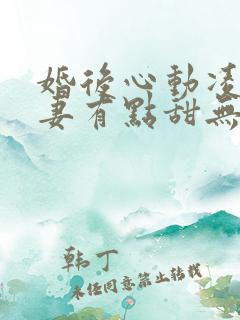 婚後心動凌
妻有點甜無
韩丁
未经同意禁止转载